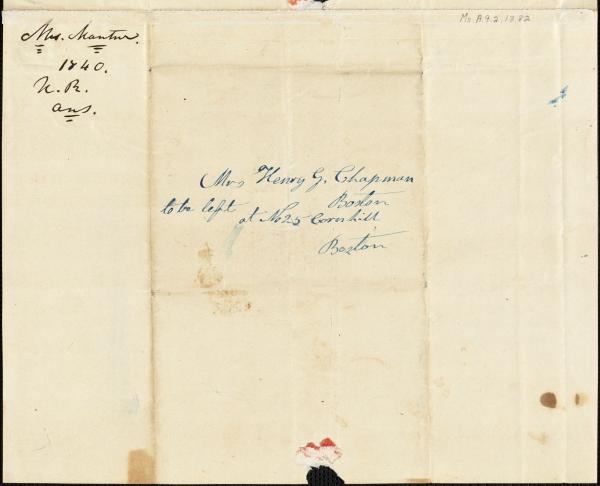 Ms. A.9.2.13.82
Mrs. Mantur.
1840.
N. B.
ans.
Mrs Henry G. Chapman
Boston
to be left
at No 25 Cornhill
Boston